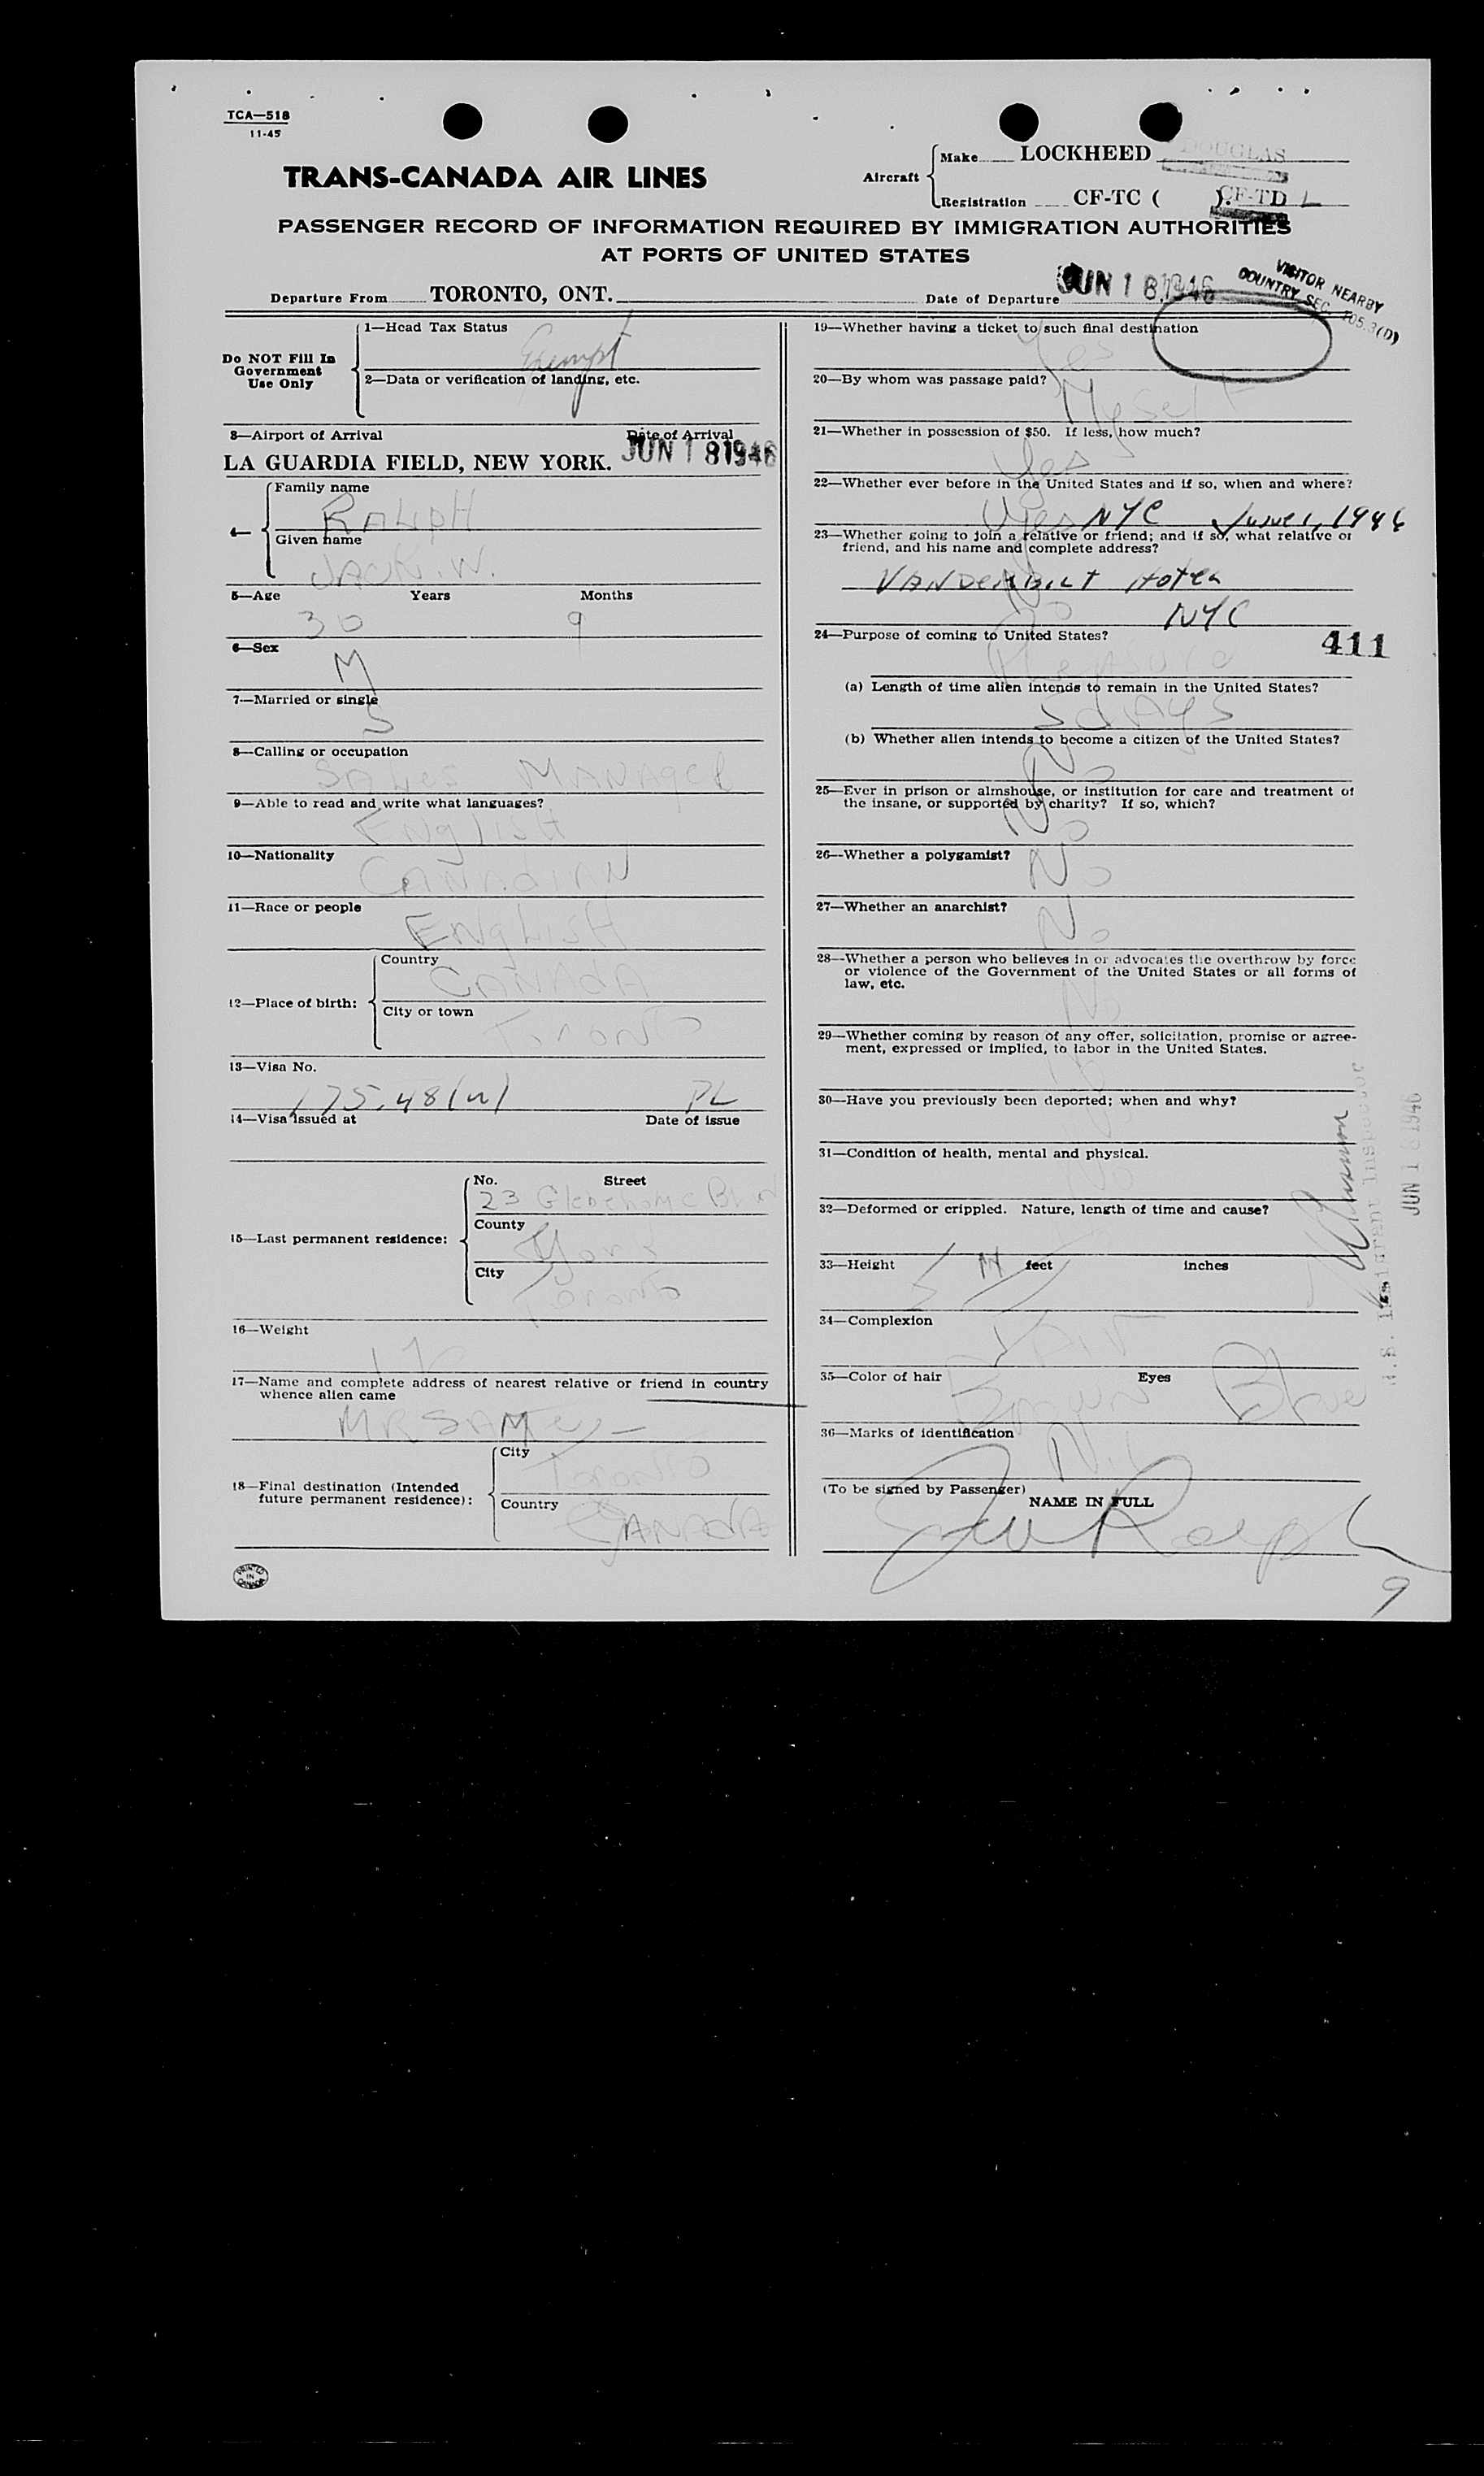 TCA—518
11-45
TRANS-CANADA AIR LINES
Aircraft
Make LOCKHEED DOUGLAS
Registration CF-TC ( ). CF-TD L
PASSENGER RECORD OF INFORMATION REQUIRED BY IMMIGRATION AUTHORITIES
AT PORTS OF UNITED STATES
Departure From TORONTO, ONT. Date of Departure JUN 18 1946
VISITOR NEARBY
COUNTRY SEC. 105.3(D)
Do NOT Fill In
Government
Use Only
1—Head Tax Status
Exempt
2—Data or verification of landing, etc.
3—Airport of Arrival Date of Arrival
LA GUARDIA FIELD, NEW YORK. JUN 18 1946
4—
Family name
RALPH
Given name
JACK. W.
5—Age Years Months
30 9
6—Sex
M
7—Married or single
S
8—Calling or occupation
SALES MANAGER
9—Able to read and write what languages?
ENglisH
10—Nationality
CANAdiAN
11—Race or people
ENgLisH
12—Place of birth:
Country
CANAdA
City or town
Toronto
13—Visa No.
175.48(w) PL
14—Visa issued at Date of issue
15—Last permanent residence:
No. Street
23
County
York
City
Toronto
16—Weight
17—Name and complete address of nearest relative or friend in country
whence alien came
18—Final destination (Intended
future permanent residence):
City
Toronto
Country
CANAdA
PRINTED
IN
CANADA
19—Whether having a ticket to such final destination
Yes
20—By whom was passage paid?
Myself
21—Whether in possession of $50. If less, how much?
Yes
22—Whether ever before in the United States and if so, when and where?
Yes NYC June 1, 1946
23—Whether going to join a relative or friend; and if so, what relative or
friend, and his name and complete address?
No
VANDERBILT HOTEL
NYC
24—Purpose of coming to United States?
Pleasure
411
(a) Length of time alien intends to remain in the United States?
5 dAys
(b) Whether alien intends to become a citizen of the United States?
No
25—Ever in prison or almshouse, or institution for care and treatment of
the insane, or supported by charity? If so, which?
No
26—Whether a polygamist?
No
27—Whether an anarchist?
No
28—Whether a person who believes in or advocates the overthrow by force
or violence of the Government of the United States or all forms of
law, etc.
No
29—Whether coming by reason of any offer, solicitation, promise or agree-
ment, expressed or implied, to labor in the United States.
30—Have you previously been deported; when and why?
31—Condition of health, mental and physical.
32—Deformed or crippled. Nature, length of time and cause?
33—Height feet inches
5 11
34—Complexion
FAIR
35—Color of hair Eyes
Brown Blue
36—Marks of identification
Nil
(To be signed by Passenger)
NAME IN FULL
JW Ralph
9
U.S. Immigrant Inspector
JUN 18 1946